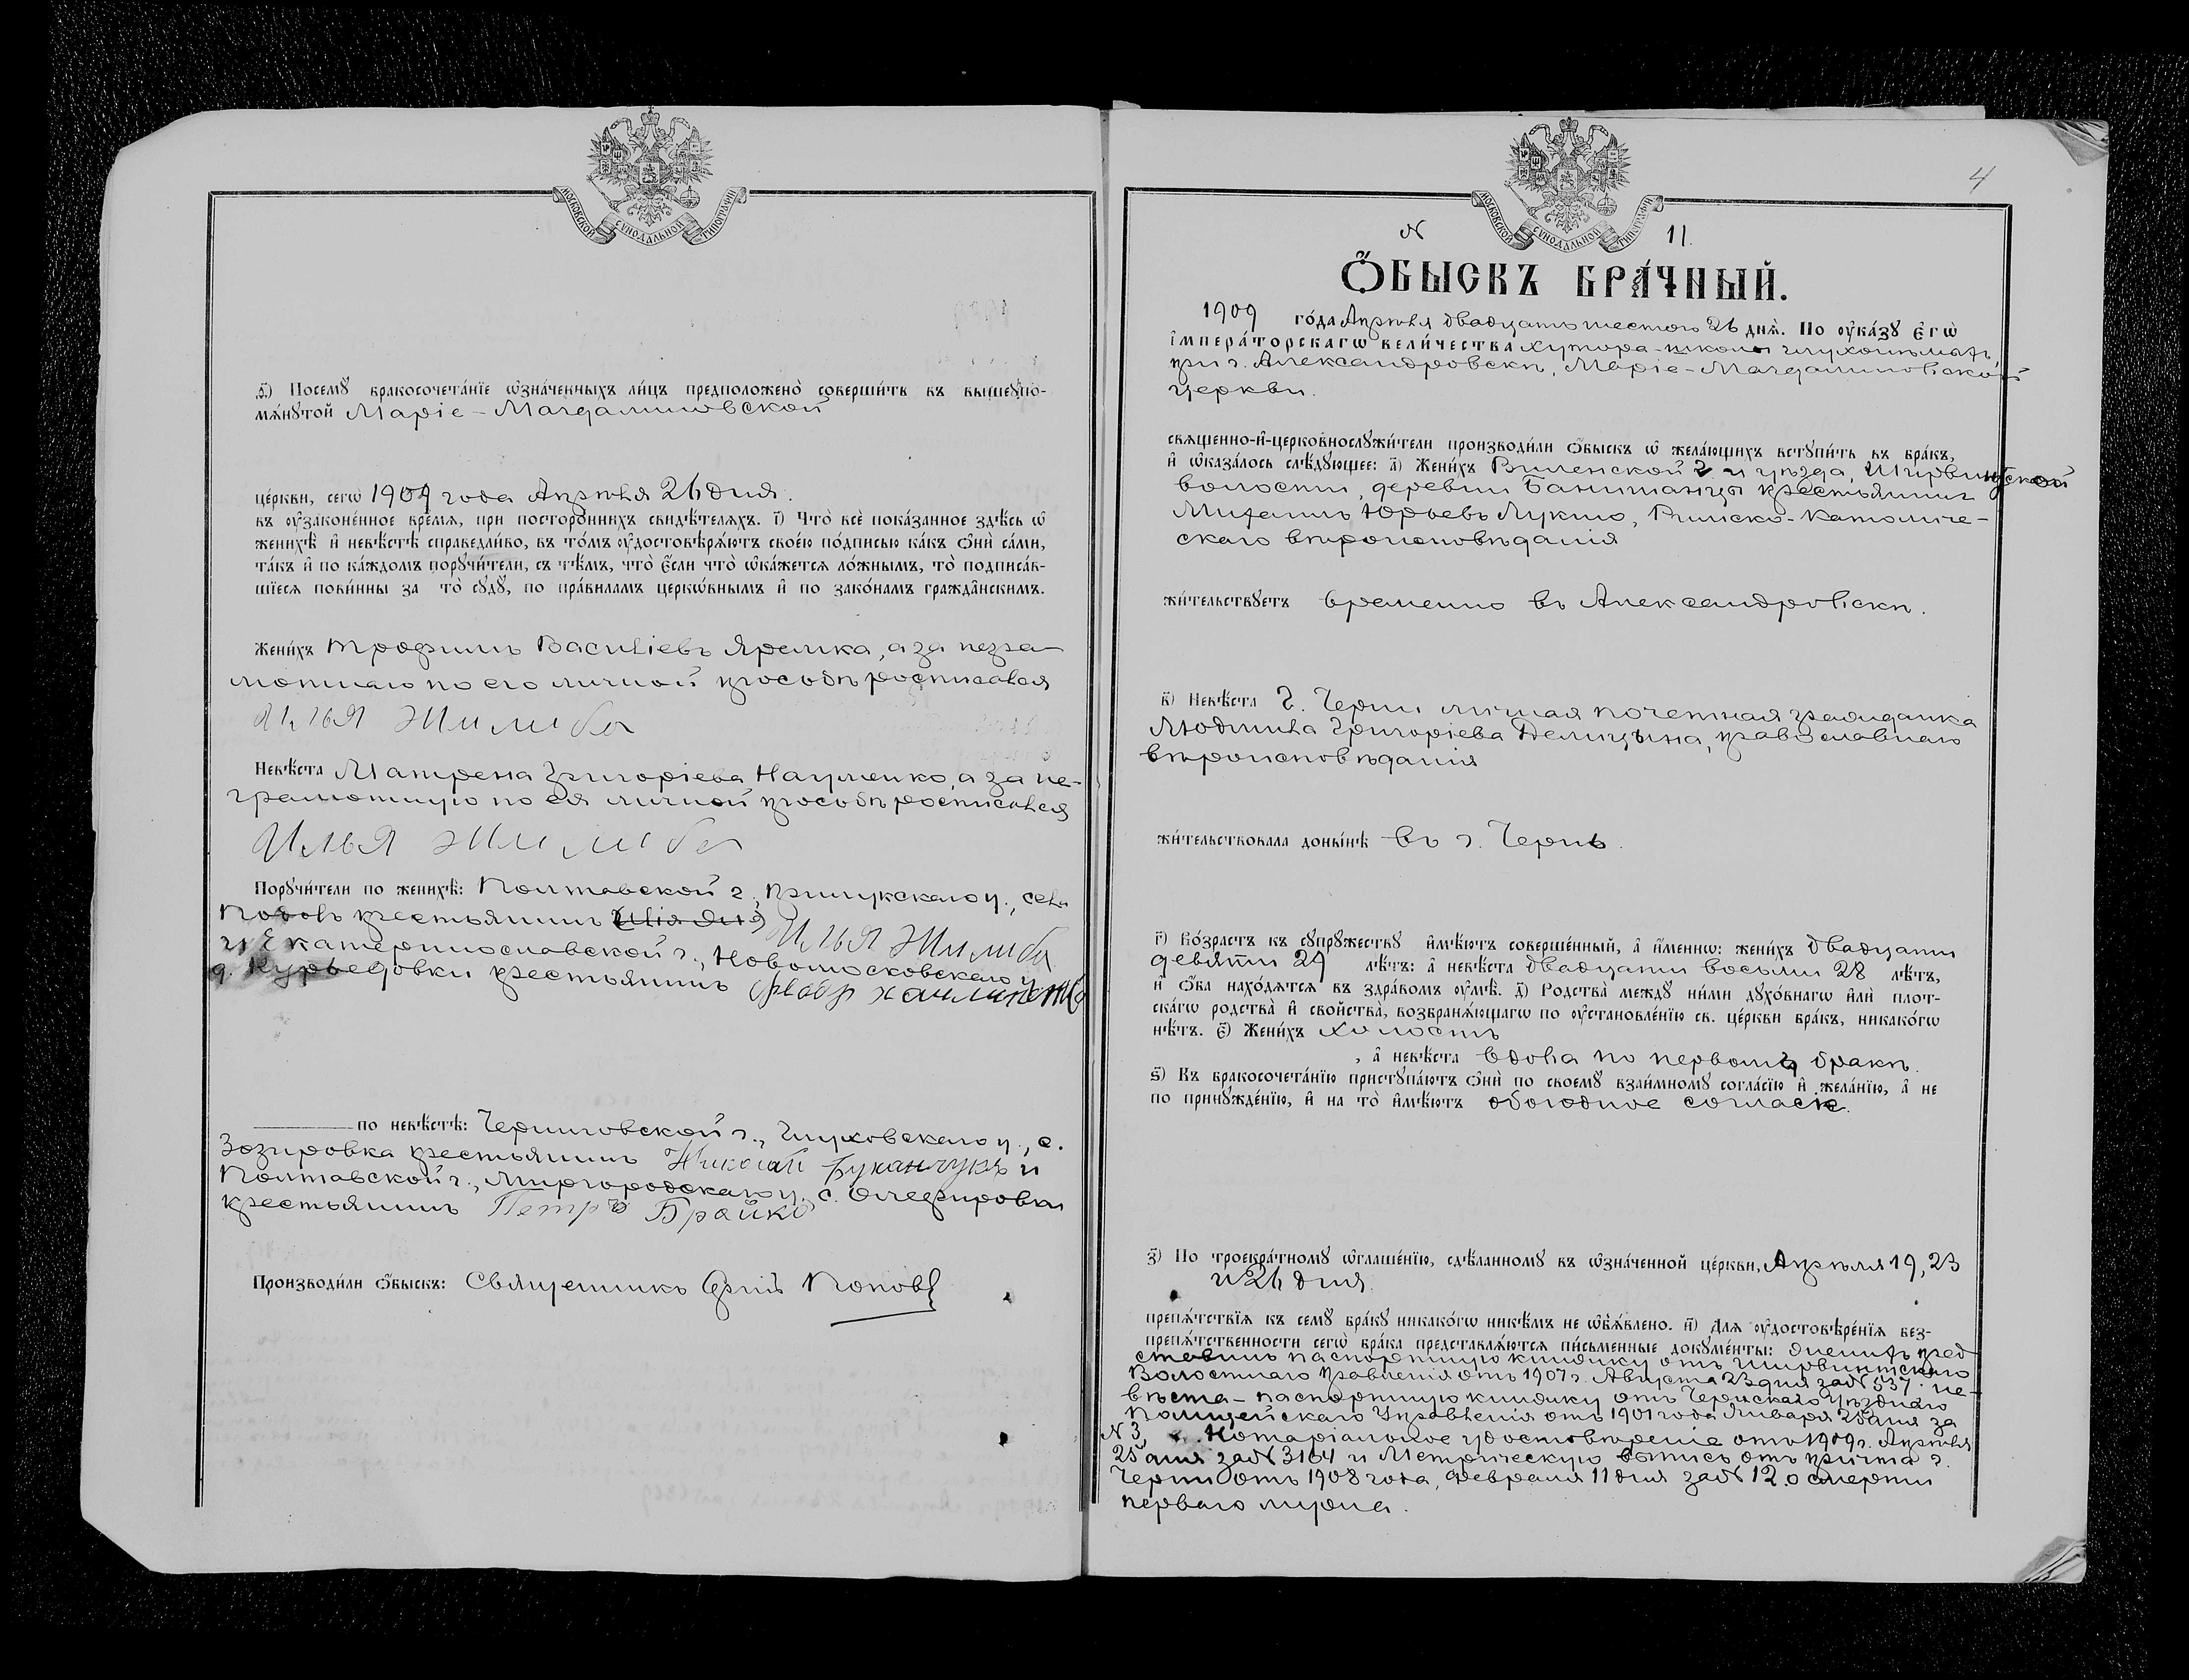 МОСКОВСКОЙ СѴНОДАЛЬНОЙ ТИПОГРАФІИ
ѳ҃) Посемꙋ̀ бракосочета́нїе ѡ҆зна́ченныхъ ли́цъ предположено̀ соверши́ть въ вышеꙋпо-
мѧ́нꙋтой Маріе-Магдалиновской
це́ркви, сегѡ̀ 1909 года Апрѣля 26 дня.
въ ᲂу҆зако́ненное вре́мѧ, при посторо́ннихъ свидѣ́телѧхъ. і҃) Что̀ всѐ пока́занное здѣ́сь ѡ҆
женихѣ̀ и҆ невѣ́стѣ справедли́во, въ то́мъ ᲂу҆достовѣрѧ́ютъ своє́ю по́дписью ка́къ ѻ҆нѝ са́ми,
та́къ и҆ по ка́ждомъ порꙋчи́тели, съ тѣ́мъ, что̀ є҆́сли что̀ ѡ҆ка́жетсѧ ло́жнымъ, то̀ подписа́в-
шїесѧ пови́нны за то̀ сꙋдꙋ̀, по пра́виламъ церкѡ́внымъ и҆ по зако́намъ гражда̂нскимъ.
Жени́хъ Трофимъ Василіевъ Яремка, а за негра-
мотнаго по его личной просьбѣ росписался
Илья Жилиба
Невѣ́ста Матрена Григоріева Науменко, а за не-
грамотную по ея личной просьбѣ росписался
Илья Жилиба
Порꙋчи́тели по женихѣ̀: Полтавской г., Прилукскаго у., села
Подовъ крестьянинъ Илья Жилиба
и Екатеринославской г., Новомосковскаго у.
д. крестьянинъ
по невѣ́стѣ: Черниговской г., Глуховскаго у., с.
крестьянинъ Николай и
Полтавской г., Миргородскаго у., с. Олефировки
крестьянинъ Петръ Брайко
Производи́ли ѻ҆́быскъ: Священникъ Попов
4
МОСКОВСКОЙ СѴНОДАЛЬНОЙ ТИПОГРАФІИ
N 11.
Ѻ҆́БЫСКЪ БРА́ЧНЫЙ.
1909 го́да Апрѣля двадцать шестого 26 днѧ̀. По ᲂу҆ка́зꙋ Є҆гѡ̀
і҆мпера́торскагѡ вели́чества хутора-школы глухонѣмыхъ,
при г. Александровскѣ, Маріе-Магдалиновской
церкви.
свѧще́нно-и҆-церковнослꙋжи́тели производи́ли ѻ҆́быскъ ѡ҆ жела́ющихъ встꙋпи́ть въ бра́къ,
и҆ ѡ҆каза́лось слѣ́дꙋющее: а҃) Жени́хъ Виленской г. и уѣзда, Ширвинтской
волости, деревни крестьянинъ
Михаилъ Юрьевъ Лукшо, Римско-Католиче-
скаго вѣроисповѣданія
жи́тельствꙋетъ временно въ Александровскѣ.
в҃) Невѣ́ста г. Черни личная почетная гражданка
Людмила Григоріева Делицына, православнаго
вѣроисповѣданія
жи́тельствовала доны́нѣ въ г. Чернь.
г҃) Во́зрастъ къ сꙋпрꙋ́жествꙋ и҆мѣ́ютъ соверше́нный, а҆ и҆́меннѡ: жени́хъ двадцати
девяти 29 лѣ́тъ: а҆ невѣ́ста двадцати восьми 28 лѣ́тъ,
и҆ ѻ҆́ба нахо́дѧтсѧ въ здра́вомъ ᲂу҆мѣ̀. д҃) Родства̀ междꙋ ни́ми дꙋхо́внагѡ и҆лѝ плот-
ска́гѡ родства̀ и҆ сво́йства, возбранѧ́ющагѡ по ᲂу҆становле́нїю св. це́ркви бра́къ, никако́гѡ
нѣ́тъ. є҃) Жени́хъ холостъ
, а҆ невѣ́ста вдова по первомъ бракѣ.
ѕ҃) Къ бракосочета́нїю пристꙋпа́ютъ ѻ҆нѝ по своемꙋ̀ взаи́мномꙋ согла́сїю и҆ жела́нїю, а҆ не
по принꙋжде́нїю, и҆ на то̀ и҆мѣ́ютъ обоюдное согласіе.
з҃) По троекра́тномꙋ ѡ҆глаше́нїю, сдѣ́ланномꙋ въ ѡ҆зна́ченной це́ркви, Апрѣля 19, 23
и 26 дня.
препѧ́тствїѧ къ семꙋ̀ бра́кꙋ никако́гѡ никѣ́мъ не ѡ҆б̾ѧ́влено. и҃) Длѧ ᲂу҆достовѣре́нїѧ без-
препѧ́тственности сегѡ̀ бра́ка представлѧ́ютсѧ пи́сьменные докꙋме́нты: женихъ пред-
ставилъ паспортную книжку отъ Ширвинтскаго
Волостнаго Правленія отъ 1907 г. Августа 23 дня за N 537. не-
вѣста - паспортную книжку отъ Чернскаго Уѣзднаго
Полицейскаго Управленія отъ 1901 года Января 25 дня за
N 3, Нотаріальное удостовѣреніе отъ 1909 г. Апрѣля
25 дня за N 3164 и Метрическую выпись отъ причта г.
Черни отъ 1908 года, Февраля 11 дня за N 12 о смерти
перваго мужа.